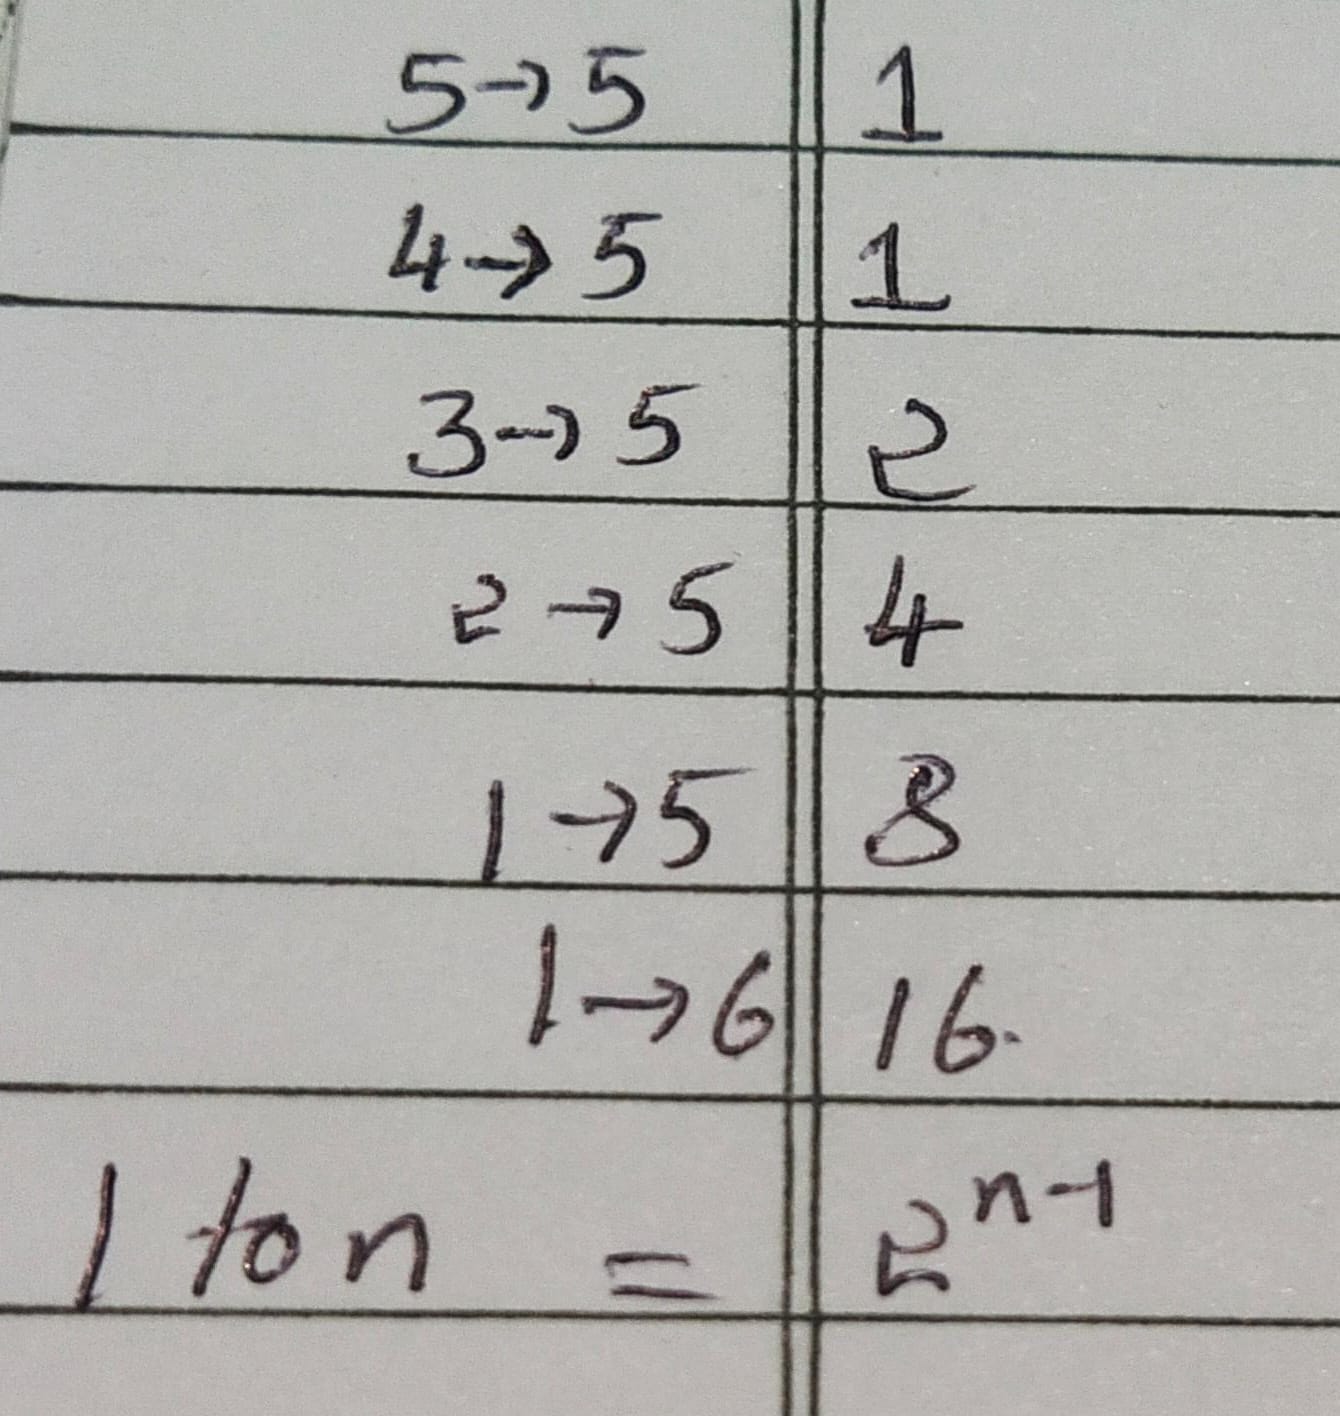 5→5 1
4→5 1
3→5 2
2→5 4
1→5 8
1→6 16.
1 to n = 2^n-1